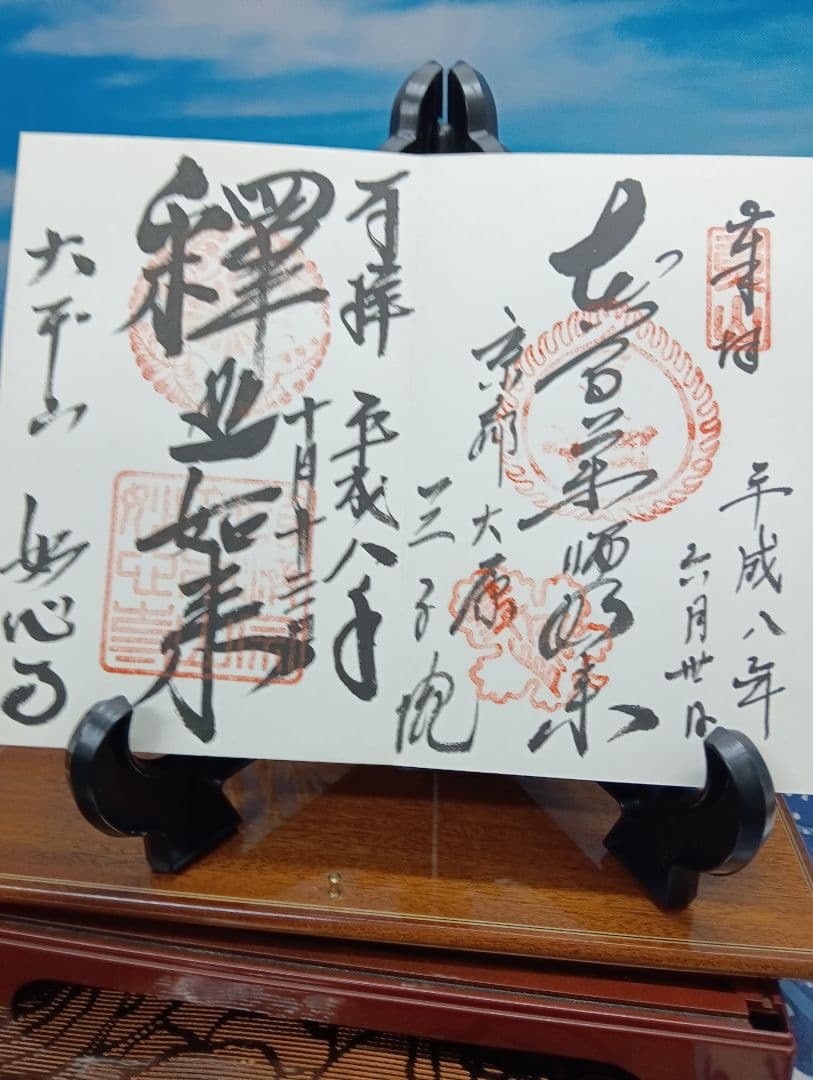 奉拝
平成八年
六月卅日
薬師如来
京都大原
三千院
奉拝 平成八年
十月十三日
釋迦如来
大平山 如心寺